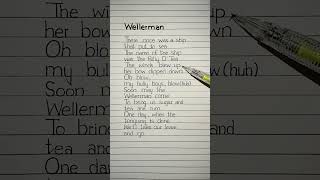 Wellerman
There once was a ship
that put to sea
The name of the ship
was the Billy O' Tea
The winds blew up
her bow dipped down
Oh blow,
my bully boys, blow (huh)
Soon may the
Wellerman come
To bring us sugar and
tea and rum
One day, when the
tonguing is done
We'll take our leave
and go